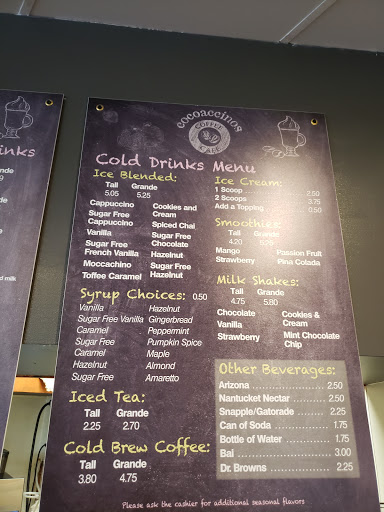 inks
d milk
cocoaccinos
COFFEE
CAFE
Cold Drinks Menu
Ice Blended:
Tall Grande
5.05 5.25
Cappuccino
Sugar Free
Cappuccino
Vanilla
Sugar Free
French Vanilla
Moccachino
Toffee Caramel
Cookies and
Cream
Spiced Chai
Sugar Free
Chocolate
Hazelnut
Sugar Free
Hazelnut
Syrup Choices: 0.50
Vanilla
Sugar Free Vanilla
Caramel
Sugar Free
Caramel
Hazelnut
Sugar Free
Hazelnut
Gingerbread
Peppermint
Pumpkin Spice
Maple
Almond
Amaretto
Iced Tea:
Tall Grande
2.25 2.70
Cold Brew Coffee:
Tall Grande
3.80 4.75
Ice Cream:
1 Scoop 2.50
2 Scoops 3.75
Add a Topping 0.50
Smoothies:
Tall Grande
4.20 5.25
Mango Passion Fruit
Strawberry Pina Colada
Milk Shakes:
Tall Grande
4.75 5.80
Chocolate
Vanilla
Strawberry
Cookies &
Cream
Mint Chocolate
Chip
Other Beverages:
Arizona 2.50
Nantucket Nectar 2.50
Snapple/Gatorade 2.25
Can of Soda 1.75
Bottle of Water 1.75
Bai 3.00
Dr. Browns 2.25
Please ask the cashier for additional seasonal flavors